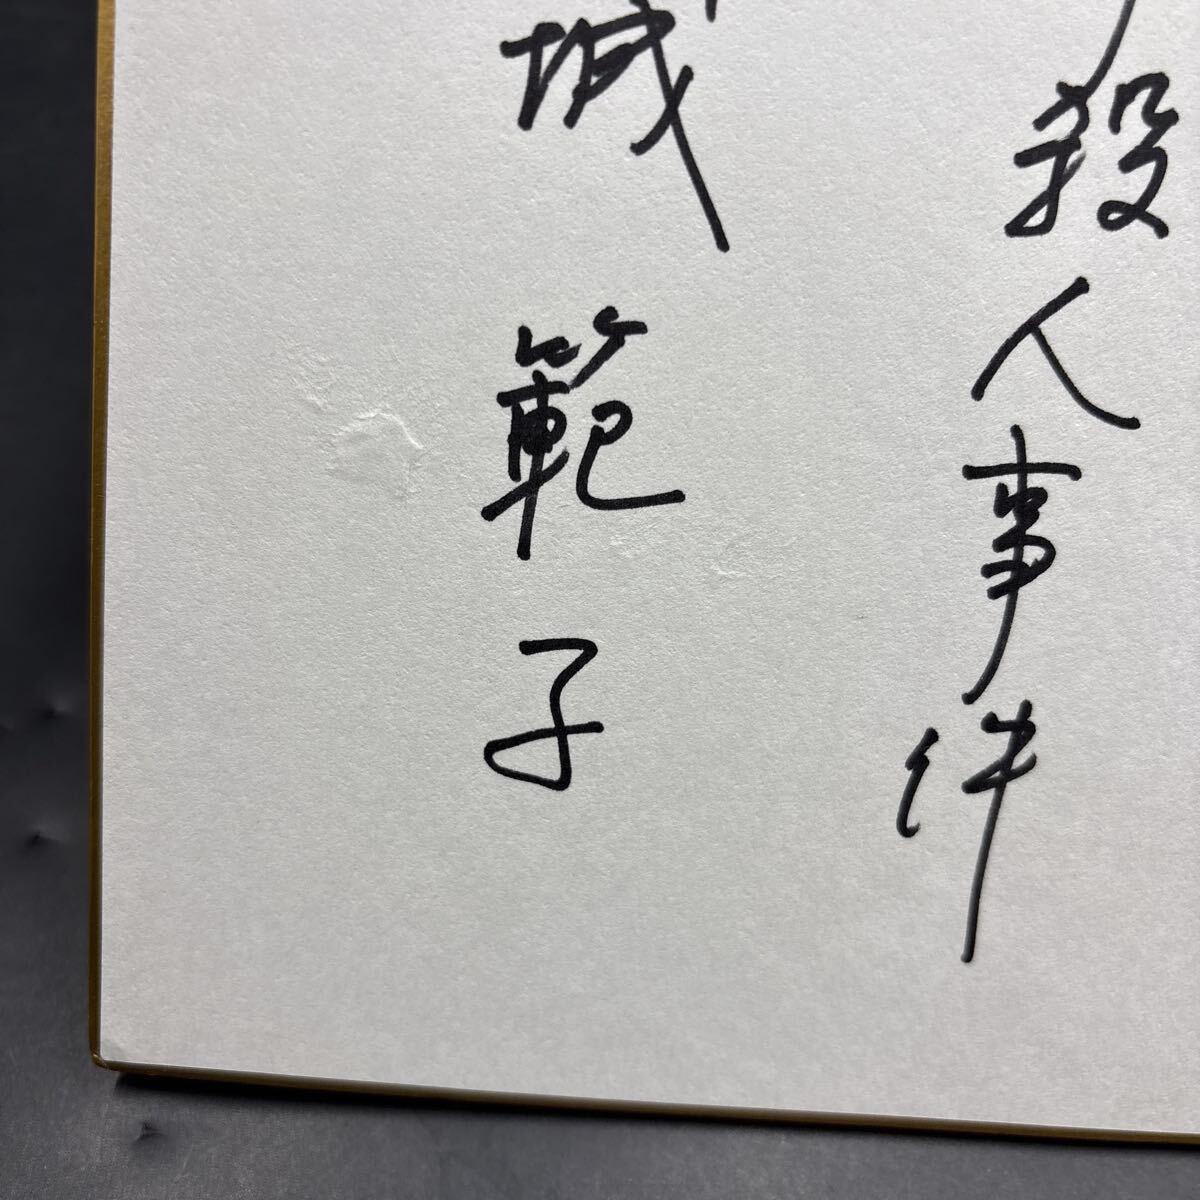 殺人事件
城範子